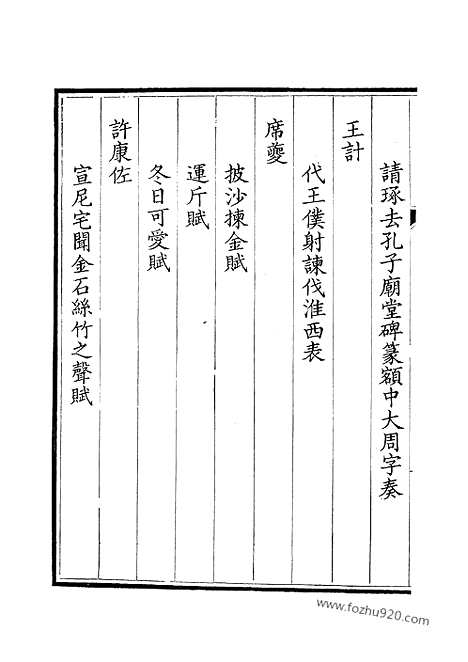 請琢去孔子廟堂碑篆額中大周字奏
王計
代王僕射諫伐淮西表
席夔
披沙揀金賦
運斤賦
冬日可愛賦
許康佐
宣尼宅聞金石絲竹之聲賦
www.fozhu920.com